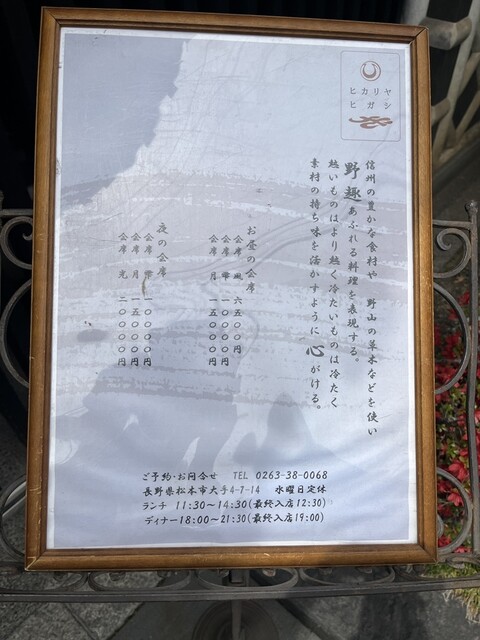 ヒカリヤ
ヒガシ
信州の豊かな食材や 野山の草木などを使い
野趣あふれる料理を表現する。
熱いものはより熱く冷たいものは冷たく
素材の持ち味を活かすように心がける。
お昼の会席
会席 風 六五〇〇円
会席 雫 一〇〇〇〇円
会席 月 一五〇〇〇円
夜の会席
会席 雫 一〇〇〇〇円
会席 月 一五〇〇〇円
会席 光 二〇〇〇〇円
ご予約・お問合せ TEL 0263-38-0068
長野県松本市大手4-7-14 水曜日定休
ランチ 11:30～14:30(最終入店12:30)
ディナー18:00～21:30(最終入店19:00)